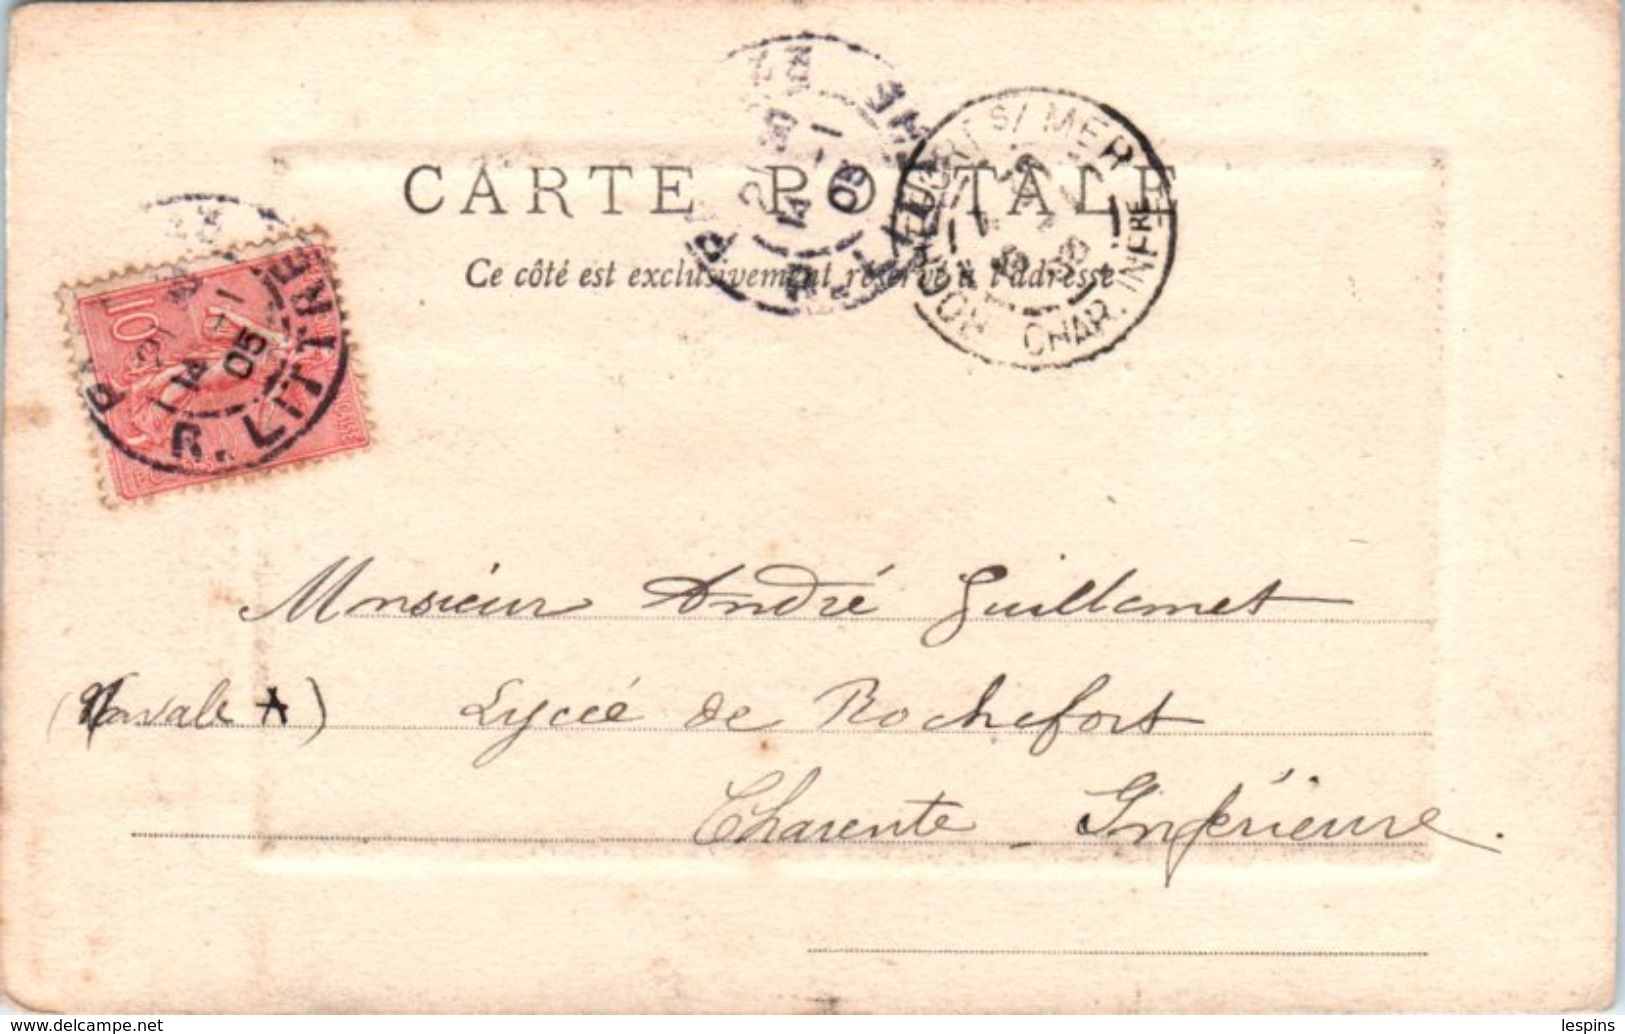 CARTE POSTALE
Ce côté est exclusivement réservé à l'adresse
R. LITTRÉ
14 -1
05
10
ROCHEFORT S/ MER
CHAR. INFRE
Monsieur André Guillemet
(Navale A) Lycée de Rochefort
Charente Inférieure.
www.delcampe.net
lespins